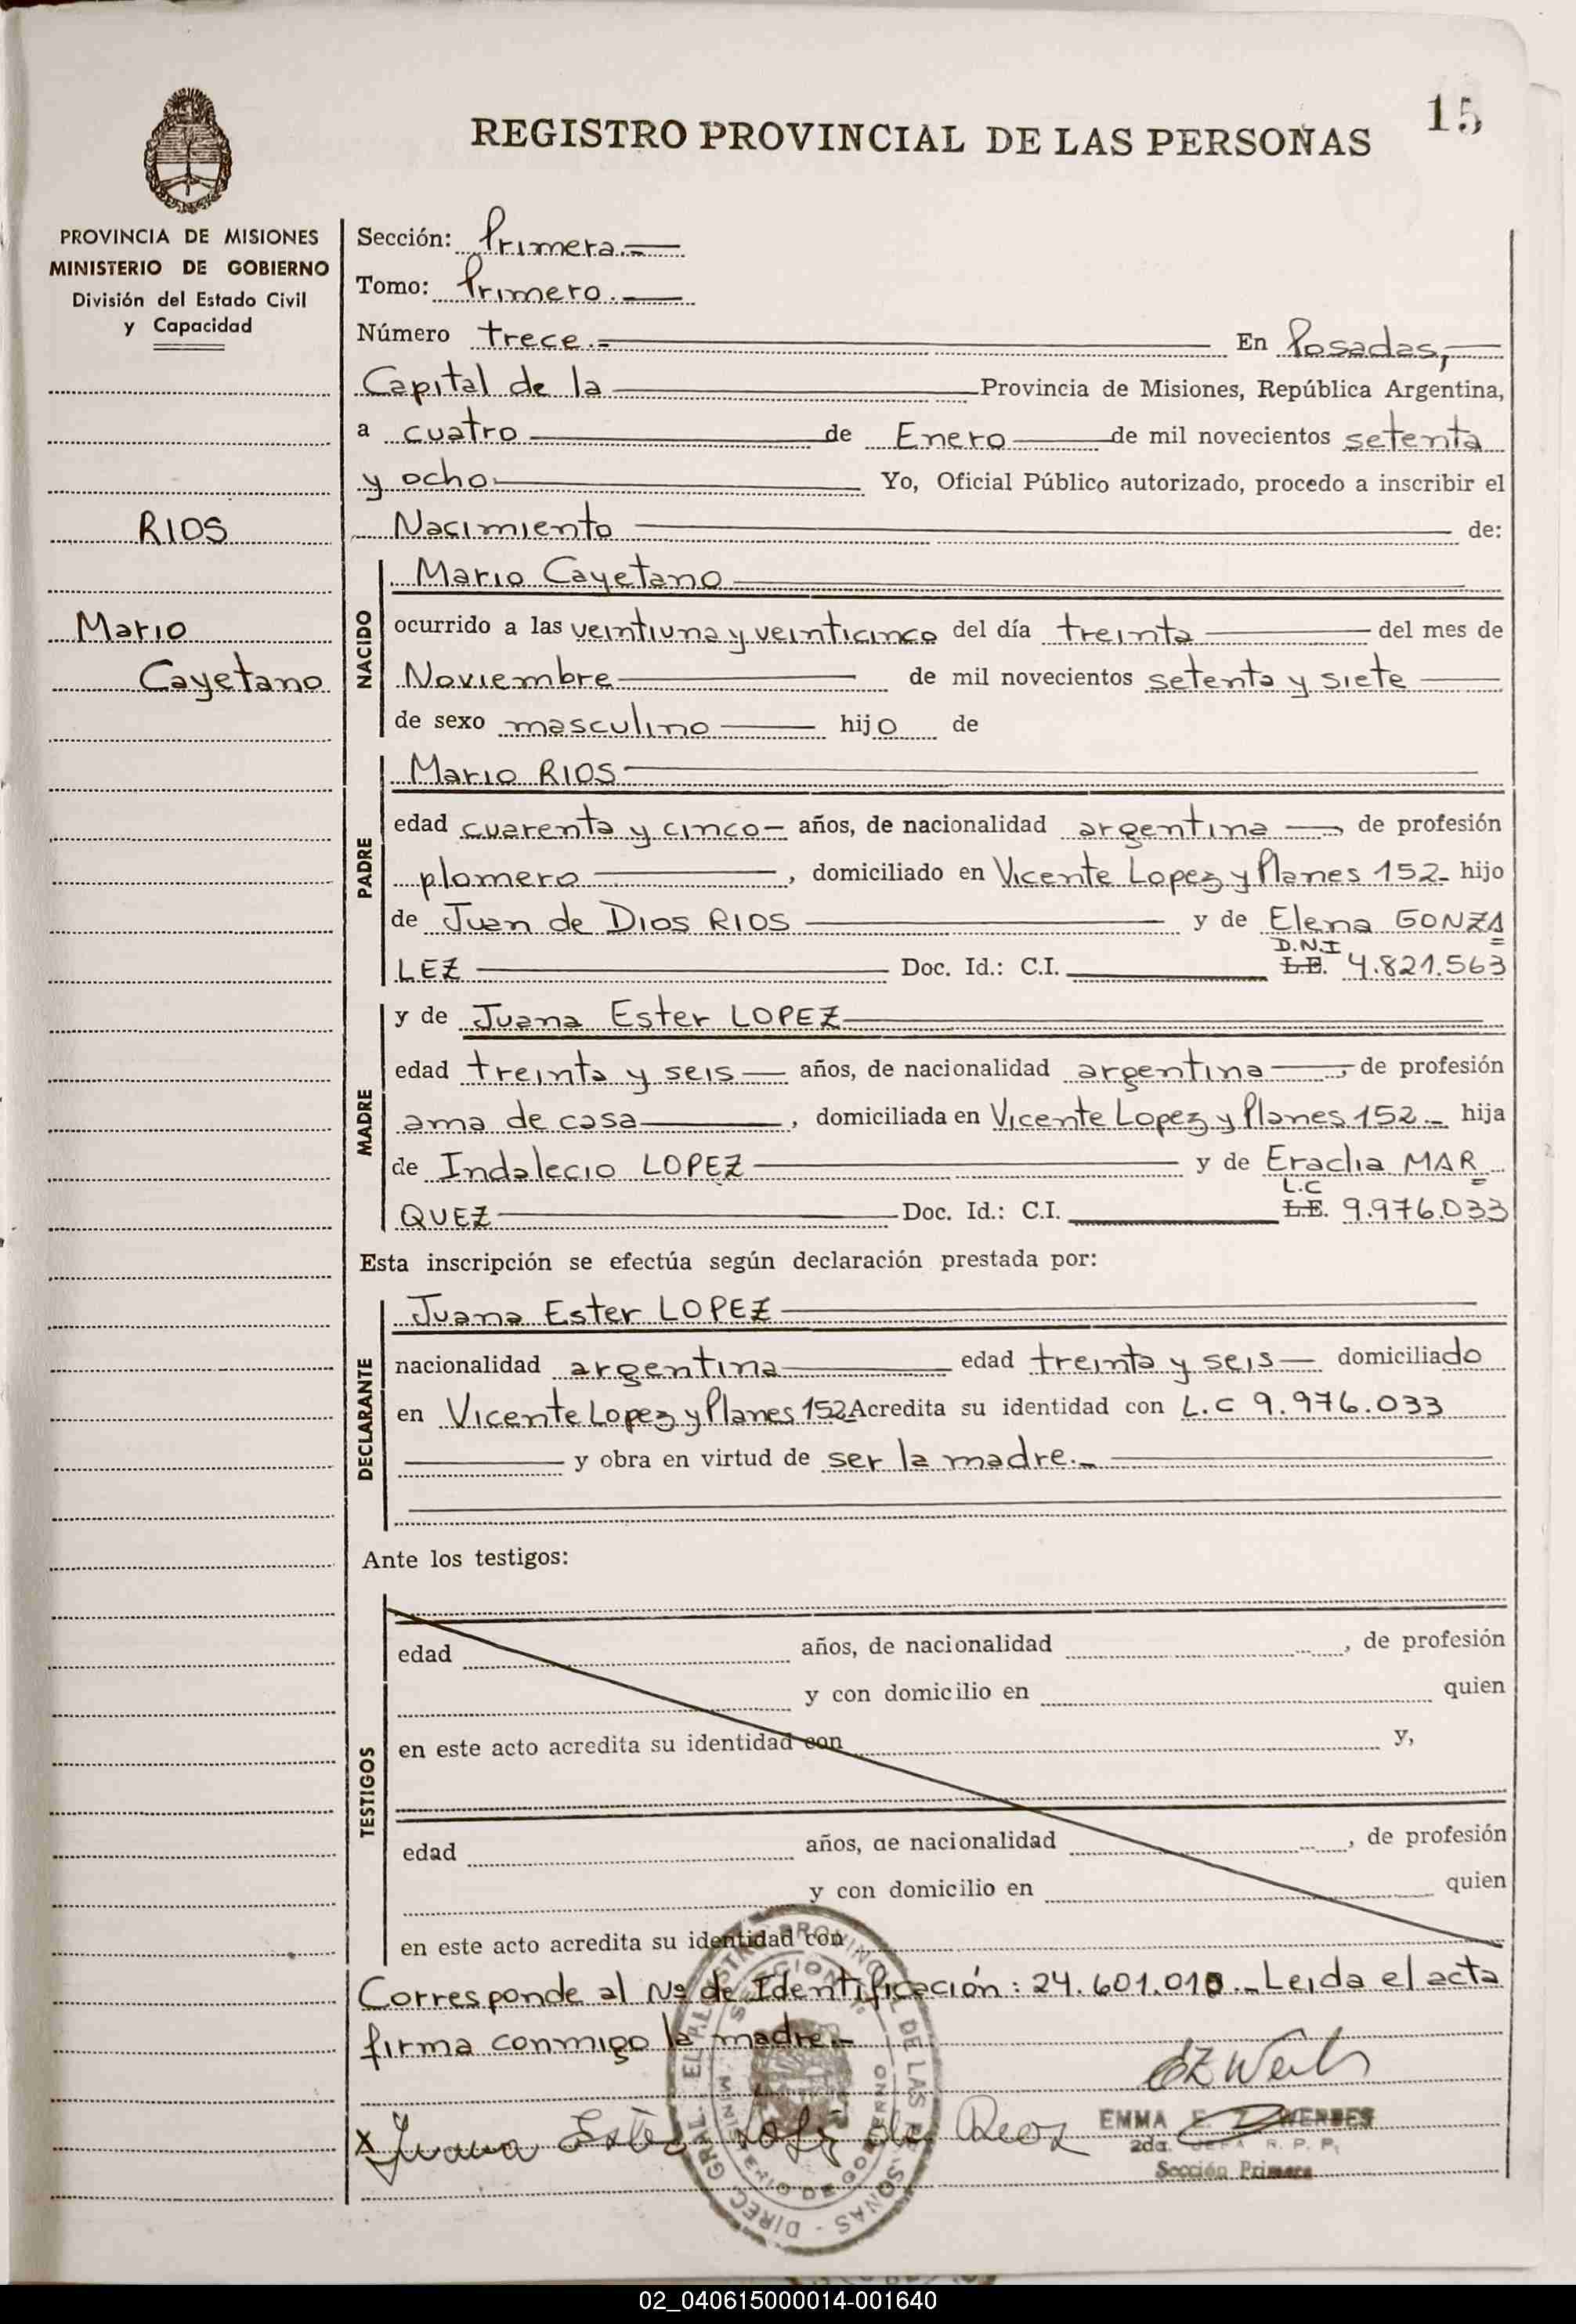 15
REGISTRO PROVINCIAL DE LAS PERSONAS
PROVINCIA DE MISIONES
MINISTERIO DE GOBIERNO
División del Estado Civil
y Capacidad
RIOS
Mario
Cayetano
Sección: Primera.-
Tomo: Primero.-
Número trece.- En Posadas,
Capital de la Provincia de Misiones, República Argentina,
a cuatro de Enero de mil novecientos setenta
y ocho Yo, Oficial Público autorizado, procedo a inscribir el
Nacimiento de:
NACIDO
Mario Cayetano
ocurrido a las veintiuna y veinticinco del día treinta del mes de
Noviembre de mil novecientos setenta y siete
de sexo masculino hijo de
PADRE
Mario RIOS
edad cuarenta y cinco - años, de nacionalidad argentina, de profesión
plomero, domiciliado en Vicente Lopez y Planes 152- hijo
de Juan de Dios RIOS y de Elena GONZA
D.N.I
LEZ Doc. Id.: C.I. L.E. 4.821.563
MADRE
y de Juana Ester LOPEZ
edad treinta y seis años, de nacionalidad argentina, de profesión
ama de casa, domiciliada en Vicente Lopez y Planes 152.- hija
de Indalecio LOPEZ y de Eraclia MAR
L.C
QUEZ Doc. Id.: C.I. L.E. 9.976.033
Esta inscripción se efectúa según declaración prestada por:
DECLARANTE
Juana Ester LOPEZ
nacionalidad argentina edad treinta y seis domiciliado
en Vicente Lopez y Planes 152- Acredita su identidad con L.C 9.976.033
y obra en virtud de ser la madre.-
Ante los testigos:
TESTIGOS
edad años, de nacionalidad , de profesión
y con domicilio en quien
en este acto acredita su identidad con y,
edad años, de nacionalidad , de profesión
y con domicilio en quien
en este acto acredita su identidad con
Corresponde al Nº de Identificación: 24.601.010.- Leida el acta
firma conmigo la madre.-
x Juana Ester de Rios
EMMA E. Z. WERBES
2da. JEFA R. P. P.
Sección Primera
02_040615000014-001640